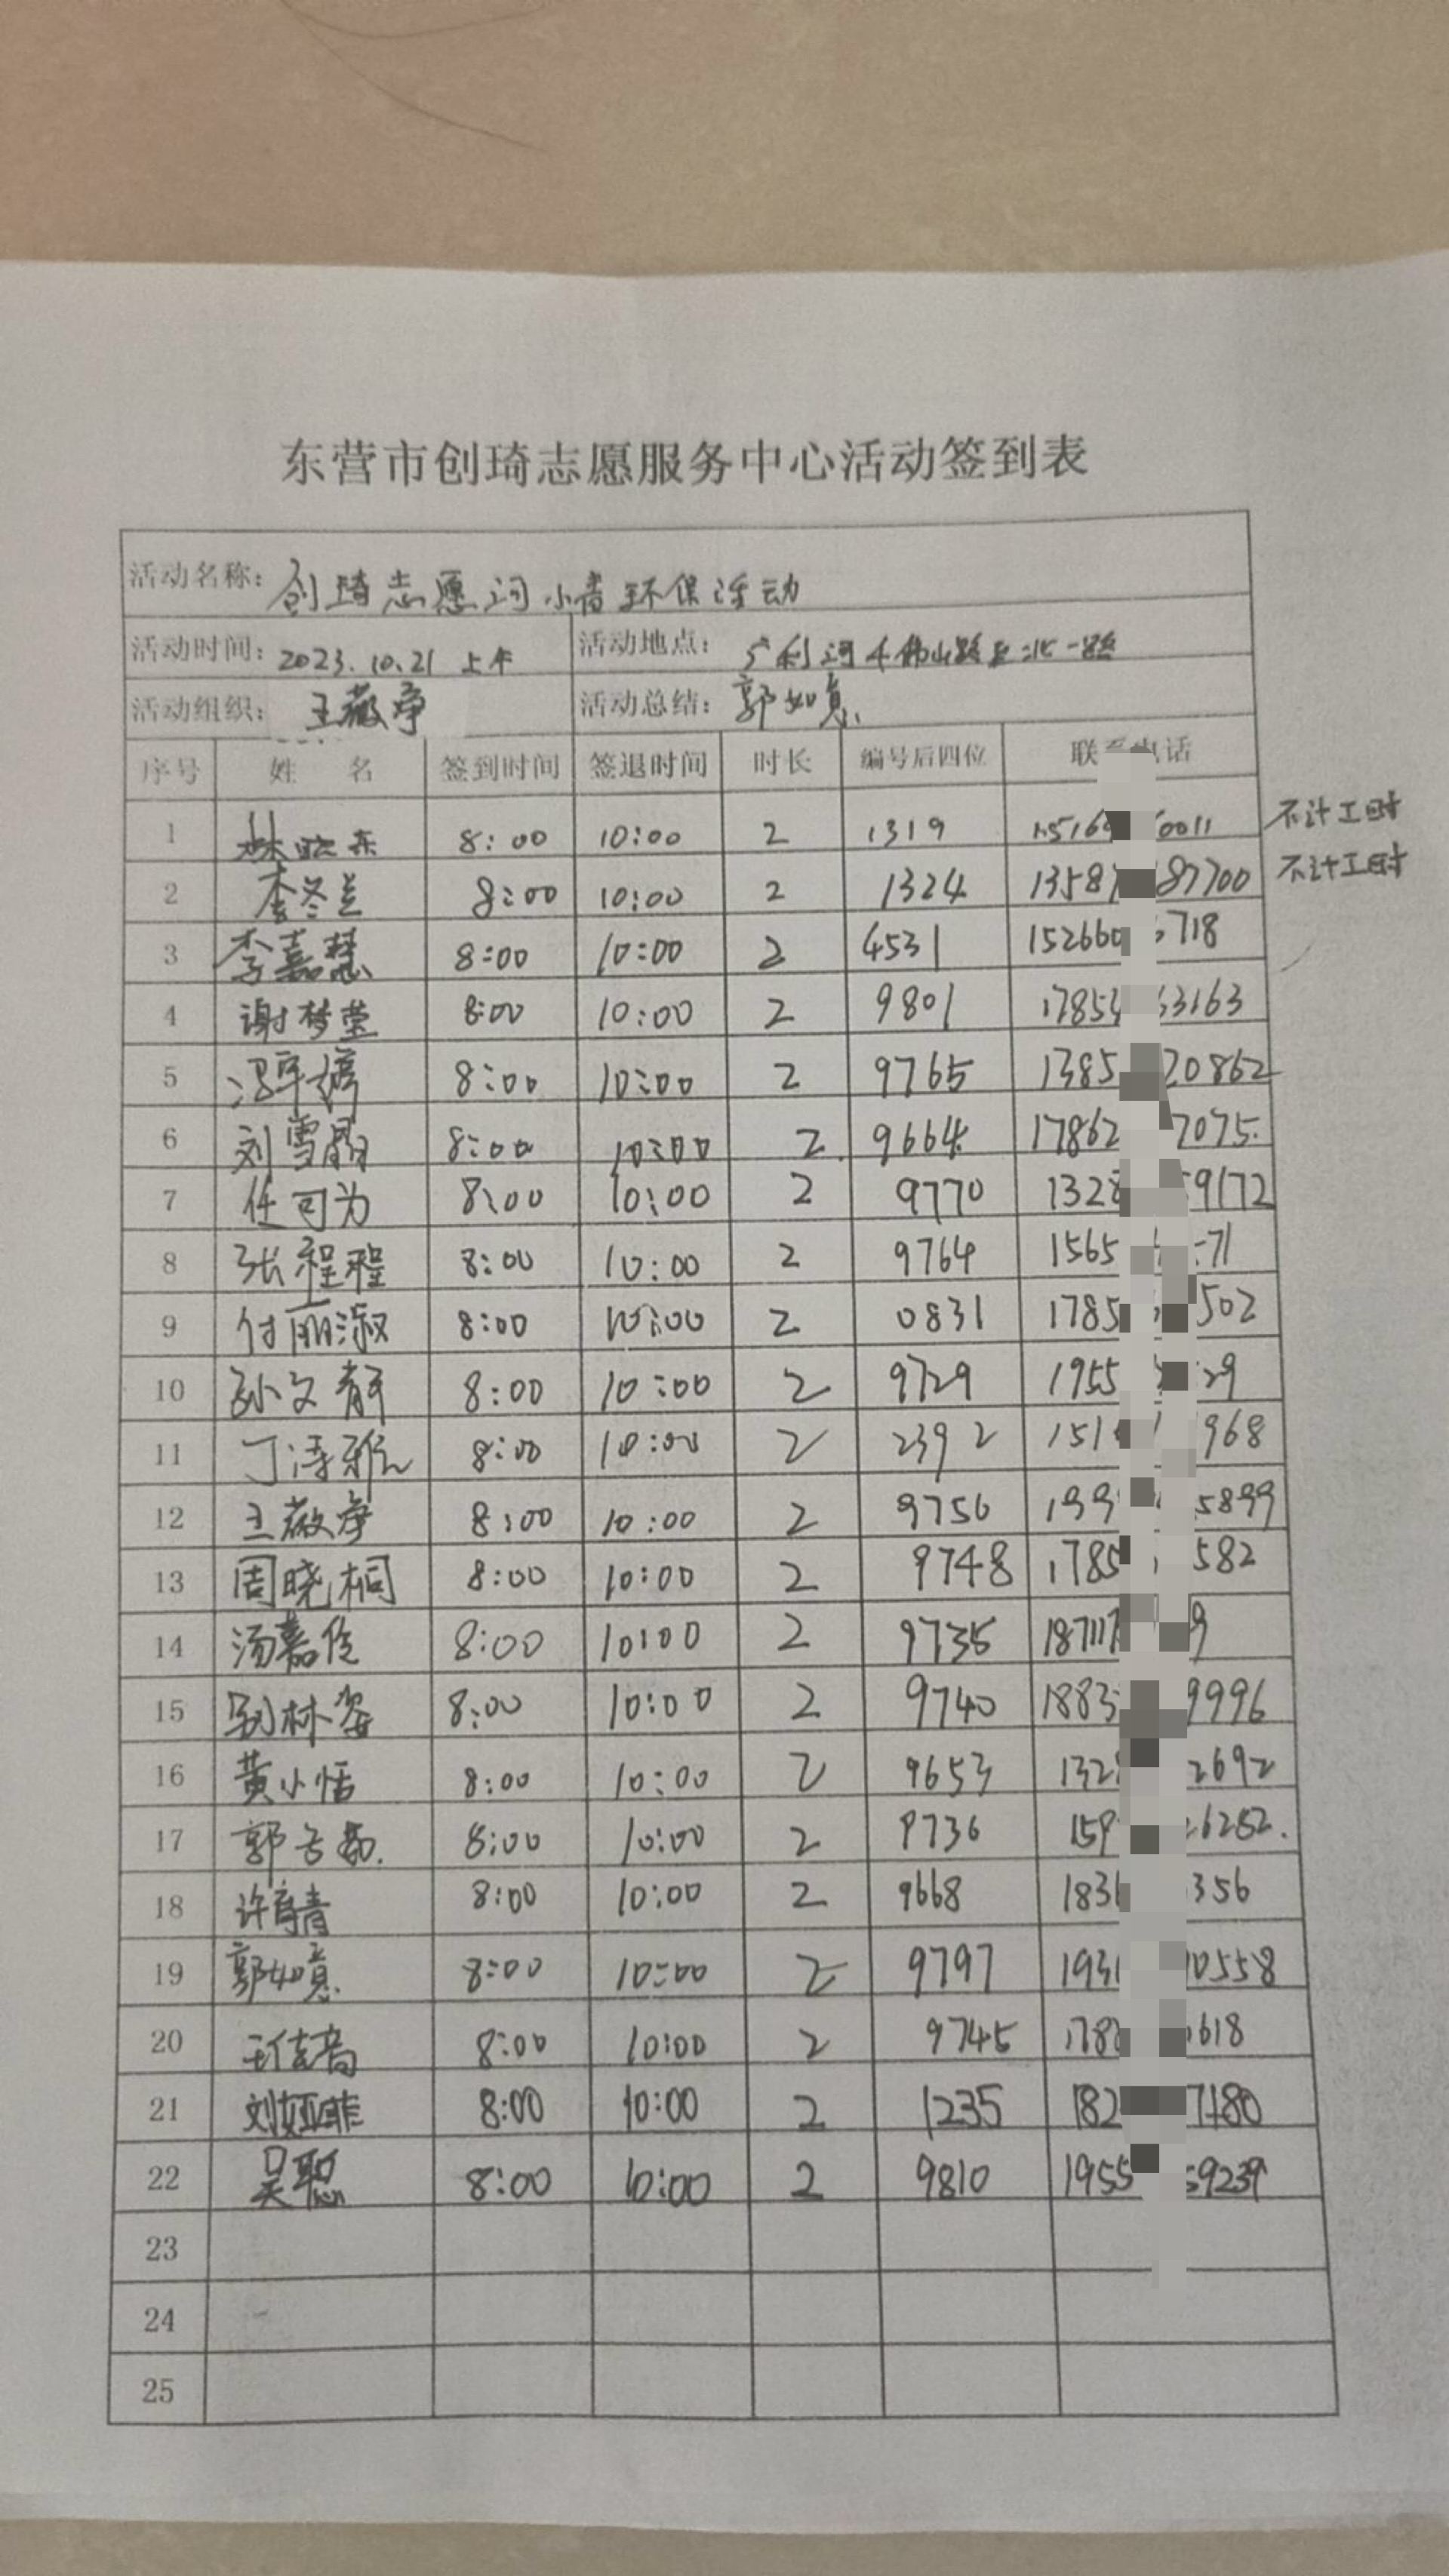 东营市创琦志愿服务中心活动签到表
活动名称: 创琦志愿河小青环保活动
活动时间: 2023.10.21 上午 活动地点: 广利河
活动组织: 王薇 活动总结: 郭如意
序号 姓 名 签到时间 签退时间 时长 编号后四位 联 电话
1 林晓东 8:00 10:00 2 1319 0011 不计工时
2 李冬兰 8:00 10:00 2 1324 1358 87700 不计工时
3 李嘉慧 8:00 10:00 2 4531 15266 718
4 谢梦莹 8:00 10:00 2 9801 1785 3163
5 8:00 10:00 2 9765 1385 20862
6 刘雪晶 8:00 10:00 2 9664 17862 7075
7 任可为 8:00 10:00 2 9770 132 9172
8 张程程 8:00 10:00 2 9764 1565 71
9 付丽淑 8:00 10:00 2 0831 1785 502
10 孙文静 8:00 10:00 2 9729 1955 29
11 丁诗雅 8:00 10:00 2 2392 151 968
12 王薇 8:00 10:00 2 9756 199 5899
13 周晓桐 8:00 10:00 2 9748 1785 582
14 汤嘉 8:00 10:00 2 9735 18711 9
15 林姿 8:00 10:00 2 9740 1883 9996
16 黄小恬 8:00 10:00 2 9653 132 2692
17 郭 8:00 10:00 2 9736 159 6282.
18 许育青 8:00 10:00 2 9668 183 356
19 郭如意 8:00 10:00 2 9797 193 0558
20 王佳音 8:00 10:00 2 9745 178 618
21 刘娅菲 8:00 10:00 2 1235 182 7180
22 吴聪 8:00 10:00 2 9810 1955 59239
23
24
25